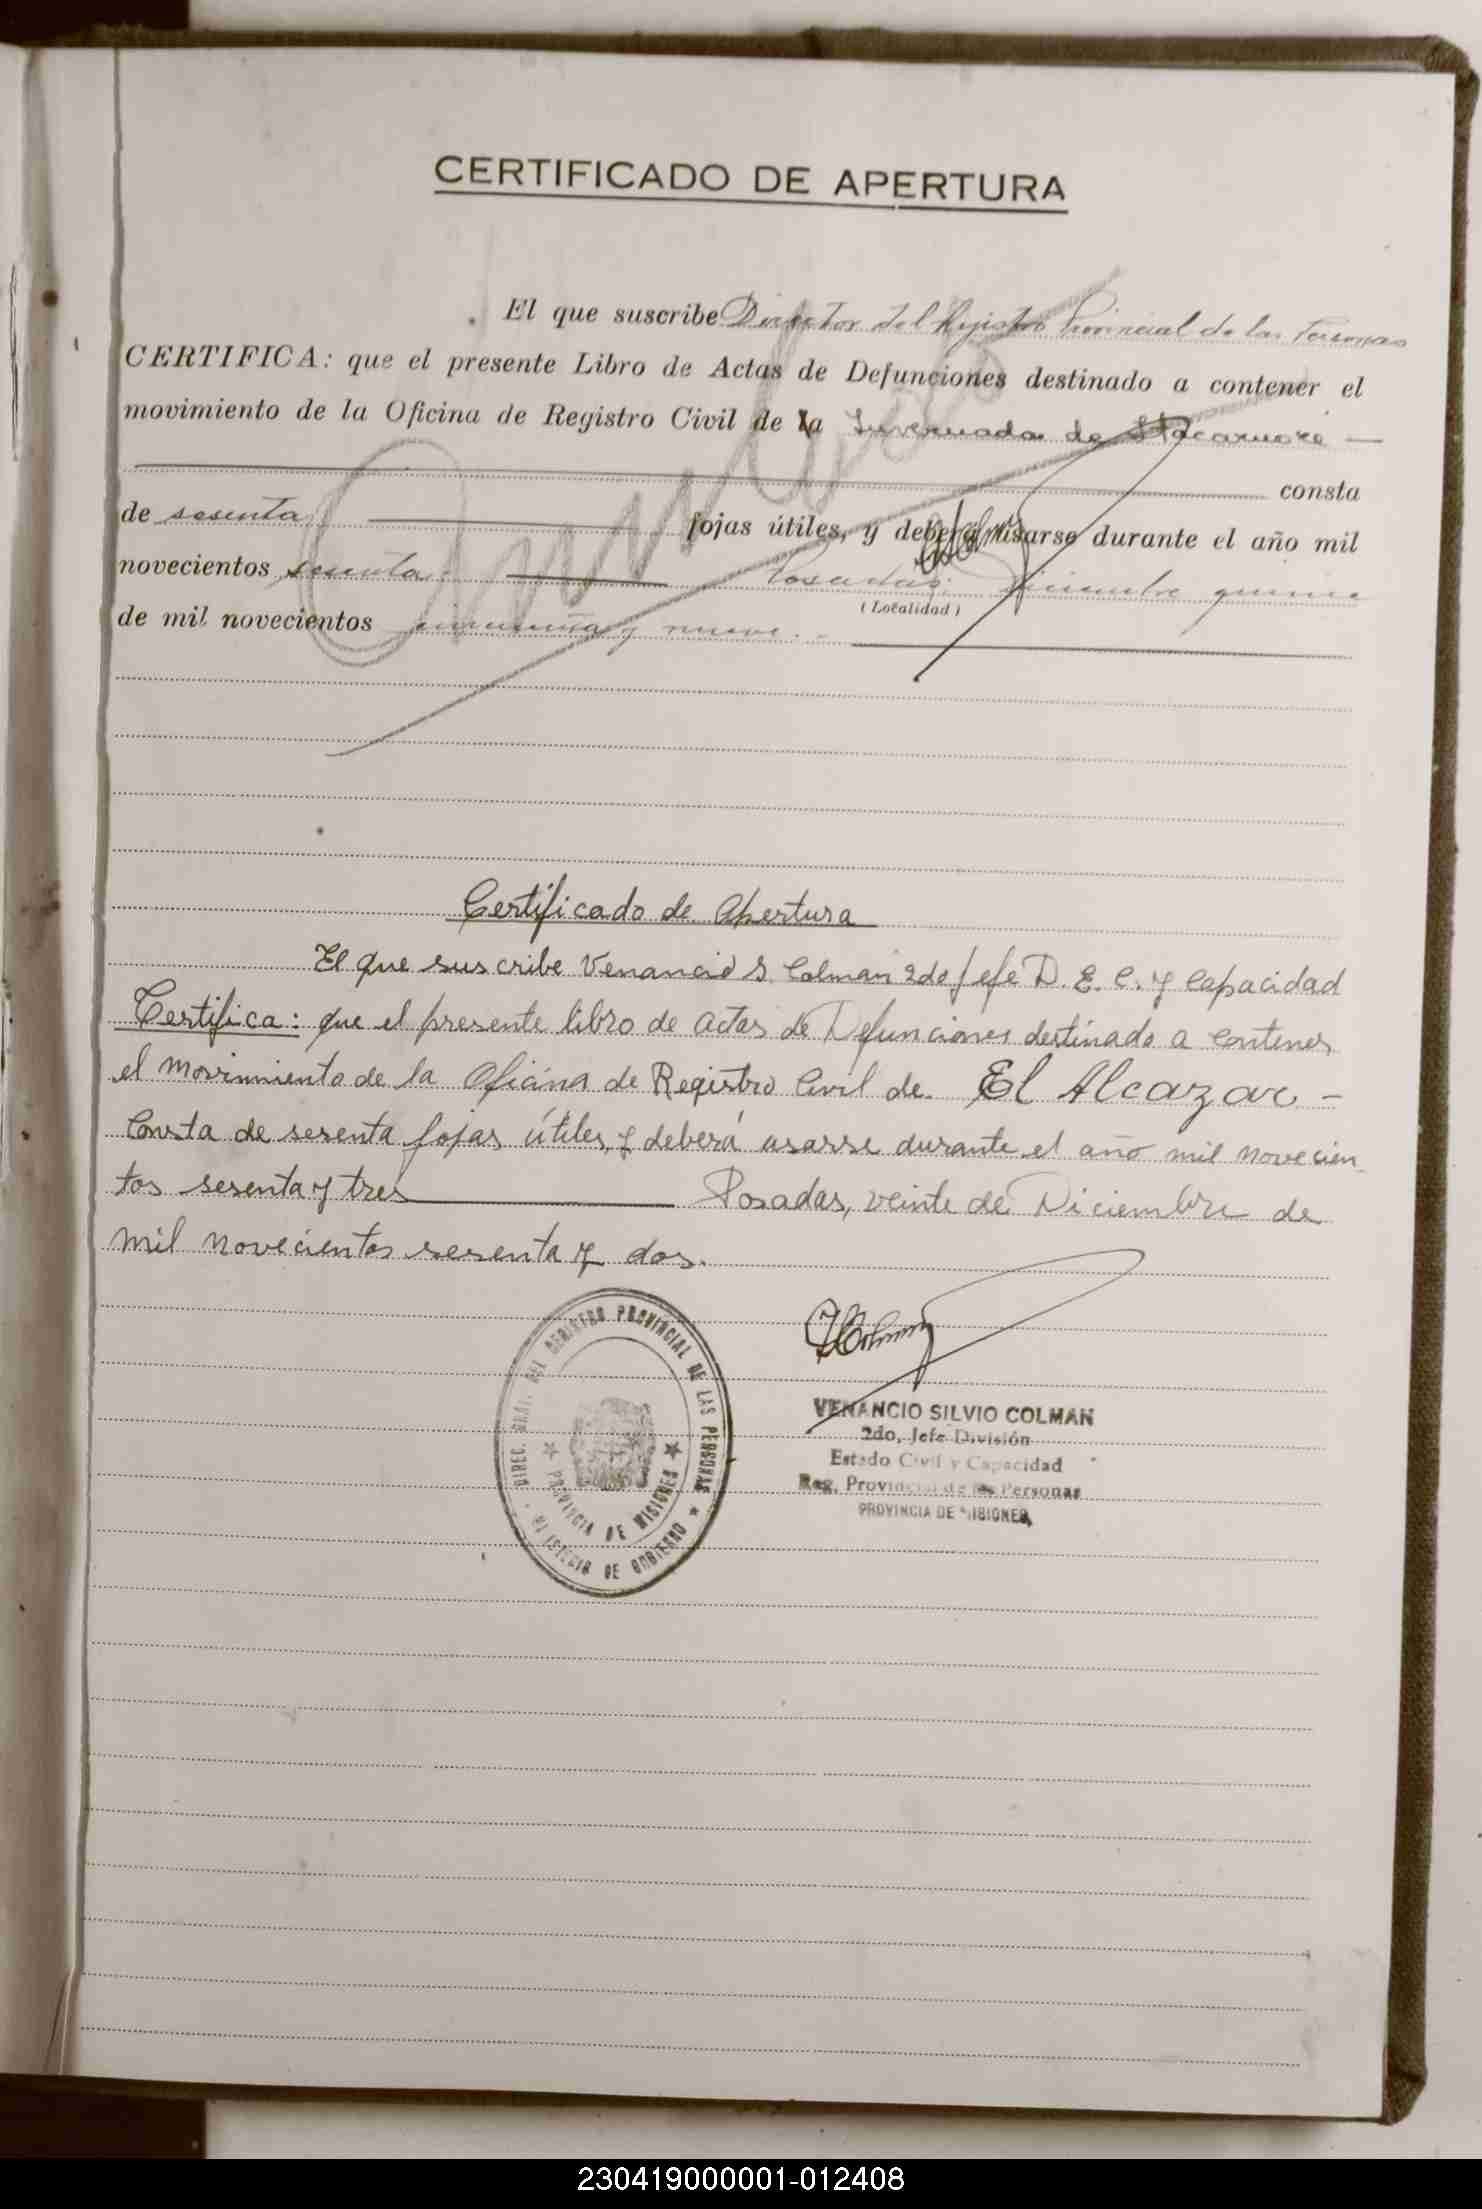 CERTIFICADO DE APERTURA
El que suscribe Director del Registro Provincial de las Personas
CERTIFICA: que el presente Libro de Actas de Defunciones destinado a contener el
movimiento de la Oficina de Registro Civil de la Invernada de Itacaruaré —
consta
de sesenta fojas útiles, y deberá usarse durante el año mil
novecientos sesenta. Posadas, diciembre quince
(Localidad)
de mil novecientos cincuenta y nueve. -
Anulado
Certificado de Apertura
El que suscribe Venancio S. Colman 2do Jefe D. E. C. y Capacidad
Certifica: que el presente libro de actas de Defunciones destinado a contener
el movimiento de la Oficina de Registro Civil de El Alcazar -
Consta de sesenta fojas útiles, y deberá usarse durante el año mil novecien
tos sesenta y tres Posadas, veinte de Diciembre de
mil novecientos sesenta y dos.
DIREC. GRAL. DEL REGISTRO PROVINCIAL DE LAS PERSONAS
PROVINCIA DE MISIONES
DE GOBIERNO
VENANCIO SILVIO COLMAN
2do, Jefe División
Estado Civil y Capacidad
Reg. Provincial de las Personas
PROVINCIA DE MISIONES
230419000001-012408